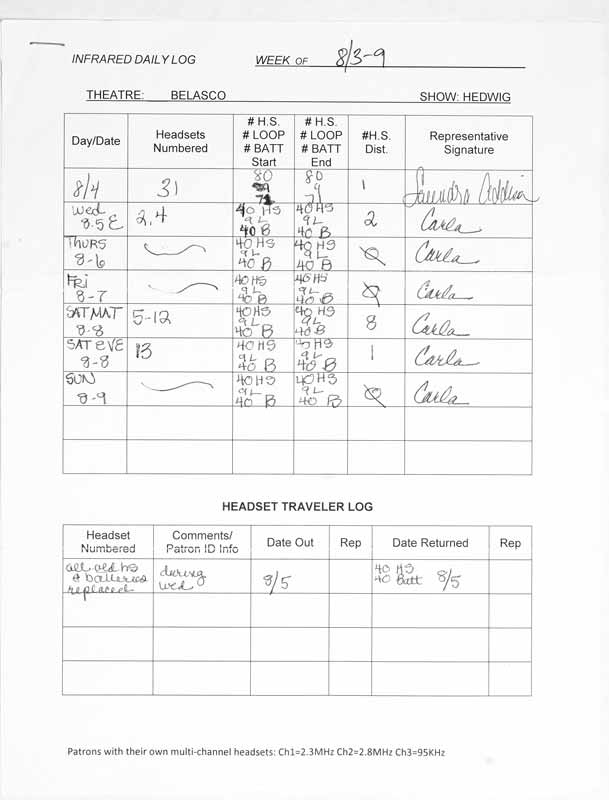 INFRARED DAILY LOG WEEK OF 8/3-9
THEATRE: BELASCO SHOW: HEDWIG
Day/Date
Headsets
Numbered
# H.S.
# LOOP
# BATT
Start
# H.S.
# LOOP
# BATT
End
#H.S.
Dist.
Representative
Signature
8/4
31
80
80
79
71
1
Wed
8.5 E
2,4
40 HS
9 L
40 B
40 HS
9 L
40 B
2
Carla
THURS
8-6
40 HS
9L
40 B
40 HS
9L
40 B
Ø
Carla
FRI
8-7
40 HS
9L
40 B
40 HS
9L
40 B
Ø
Carla
SAT MAT
8-8
5-12
40 HS
9L
40 B
40 HS
9L
40 B
8
Carla
SAT EVE
8-8
13
40 HS
9L
40 B
40 HS
9L
40 B
1
Carla
SUN
8-9
40 HS
9L
40 B
40 HS
9L
40 B
Ø
Carla
HEADSET TRAVELER LOG
Headset
Numbered
Comments/
Patron ID Info
Date Out
Rep
Date Returned
Rep
all old hs
& batteries
replaced
during
wed
8/5
40 HS
40 Batt 8/5
Patrons with their own multi-channel headsets: Ch1=2.3MHz Ch2=2.8MHz Ch3=95KHz